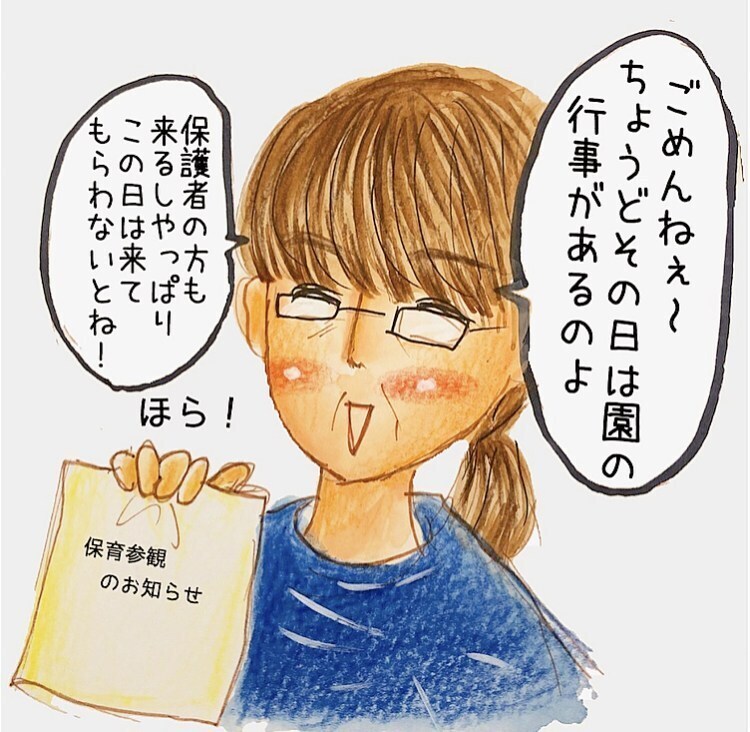 ごめんねぇ〜
ちょうどその日は園の
行事があるのよ
保護者の方も
来るしやっぱり
この日は来て
もらわないとね！
ほら！
保育参観
のお知らせ